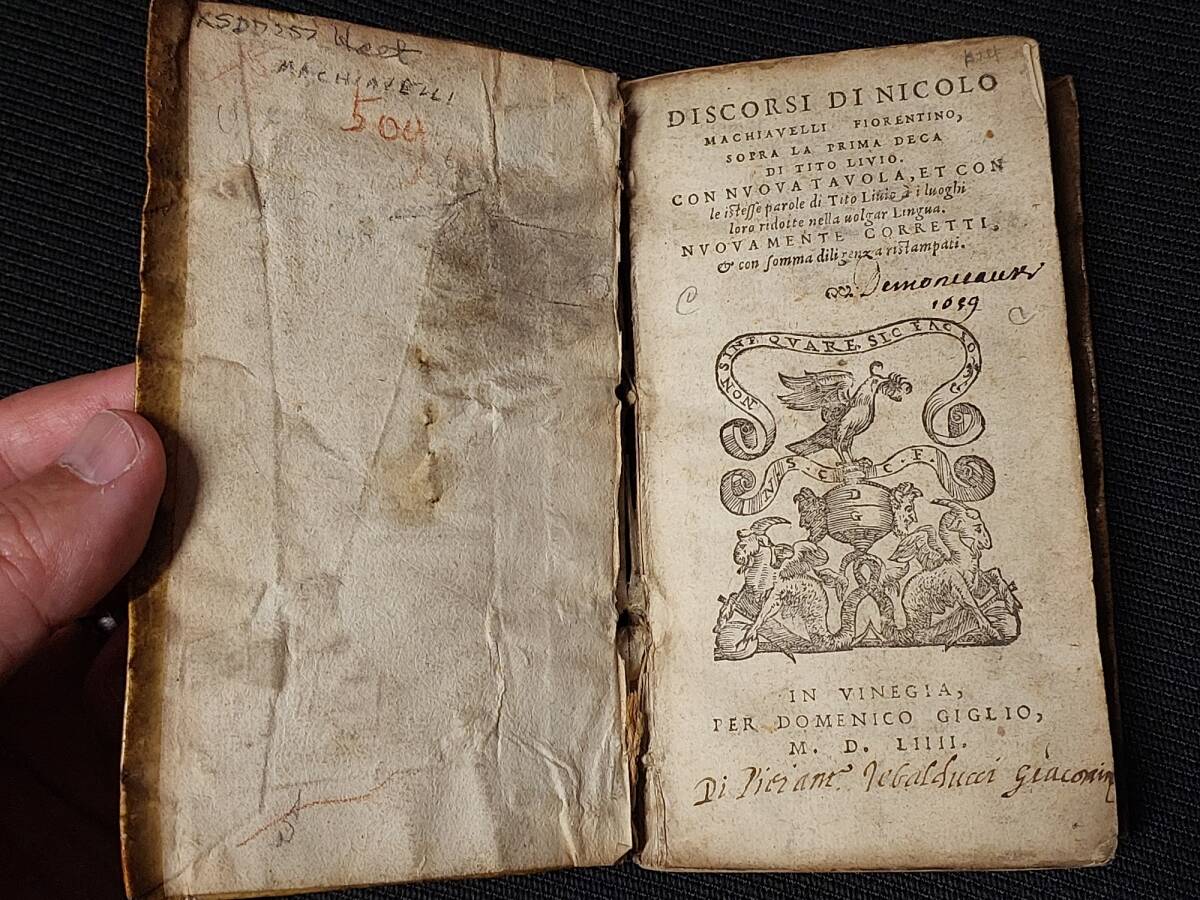 MACHIAVELLI
DISCORSI DI NICOLO
MACHIAVELLI FIORENTINO,
SOPRA LA PRIMA DECA
DI TITO LIVIO.
CON NVOVA TAVOLA, ET CON
le istesse parole di Tito Liuio à i luoghi
loro ridotte nella uolgar Lingua.
NVOVAMENTE CORRETTI,
& con somma diligenza ristampati.
1659
NON SINE QVARE SIC FACIO
C. F.
G
IN VINEGIA,
PER DOMENICO GIGLIO,
M. D. LIIII.
Di Tebalducci Giacomin